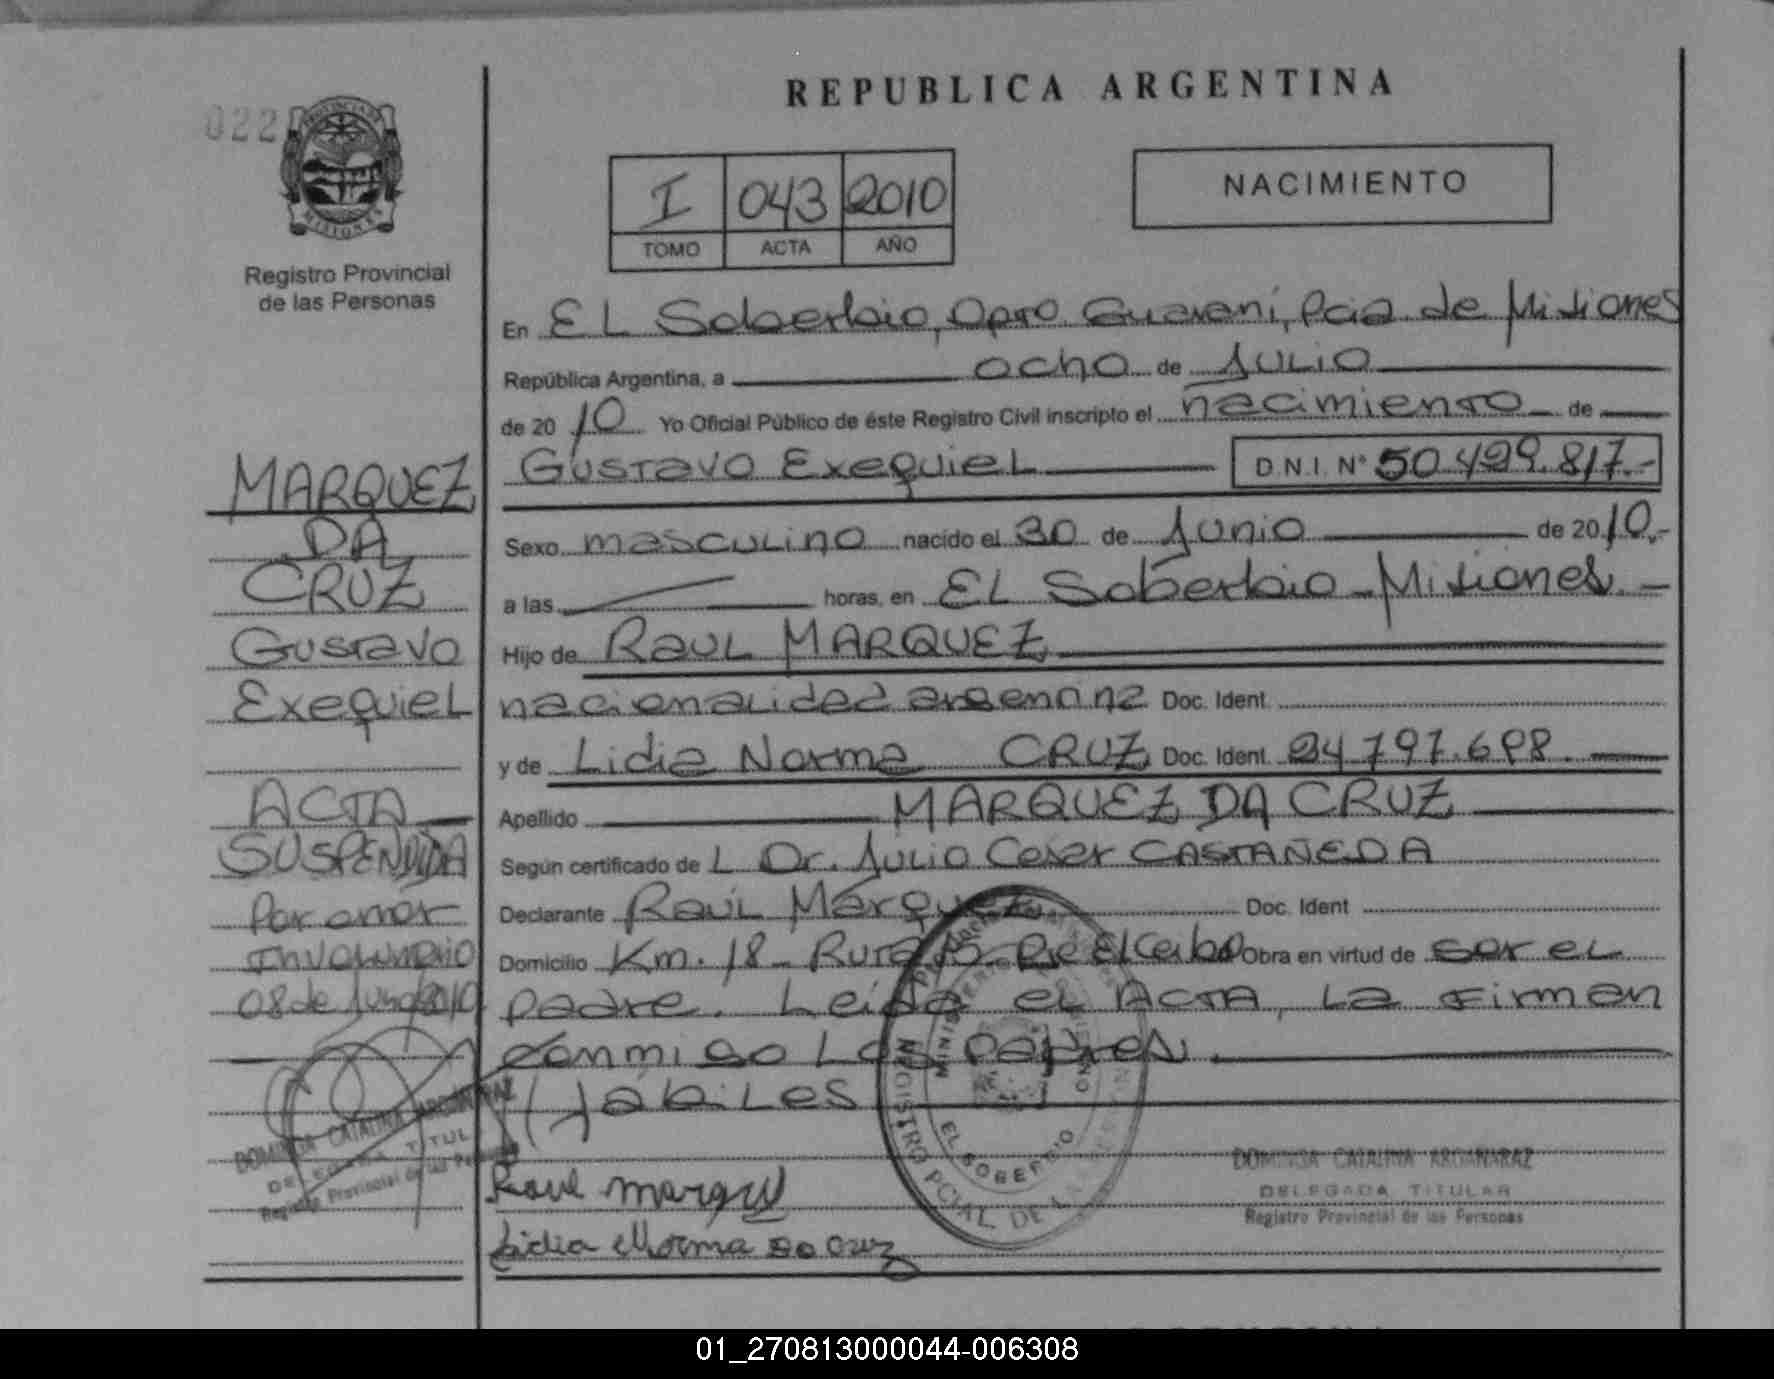 REPUBLICA ARGENTINA
022
PROVINCIA DE
MISIONES
Registro Provincial
de las Personas
I 043 2010
TOMO ACTA AÑO
NACIMIENTO
En EL Soberbio, Dpto Guaraní, Pcia de Misiones
República Argentina, a ocho de Julio
de 2010 Yo Oficial Público de éste Registro Civil inscripto el nacimiento de
Gustavo Exequiel D.N.I. Nº 50.499.817.-
Sexo masculino nacido el 30 de Junio de 2010.-
a las horas, en EL Soberbio - Misiones. -
Hijo de Raul MARQUEZ
nacionalidad argentina Doc. Ident.
y de Lidia Norma CRUZ Doc. Ident. 24.797.698.
Apellido MARQUEZ DA CRUZ
Según certificado de L Dr. Julio Cesar CASTAÑEDA
Declarante Raúl Márquez Doc. Ident
Domicilio Km. 18 - Ruta Obra en virtud de ser el
padre. Leída el ACTA, La firman
conmigo Los padres.
( ) ábiles
MARQUEZ
DA
CRUZ
Gustavo
Exequiel
ACTA
SUSPENDIDA
Por error
Involuntario
08 de Julio 2010
DOMINGA CATALINA ARGAÑARAZ
DELEGADA TITULAR
Registro Provincial de las Personas
Raul Marquez
Lidia Norma Da Cruz
MINISTERIO
GOBIERNO
REGISTRO PCIAL. DE LAS
EL SOBERBIO
DOMINGA CATALINA ARGAÑARAZ
DELEGADA TITULAR
Registro Provincial de las Personas
01_270813000044-006308